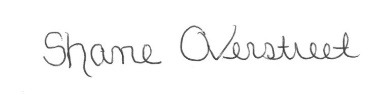 Shane Overstreet